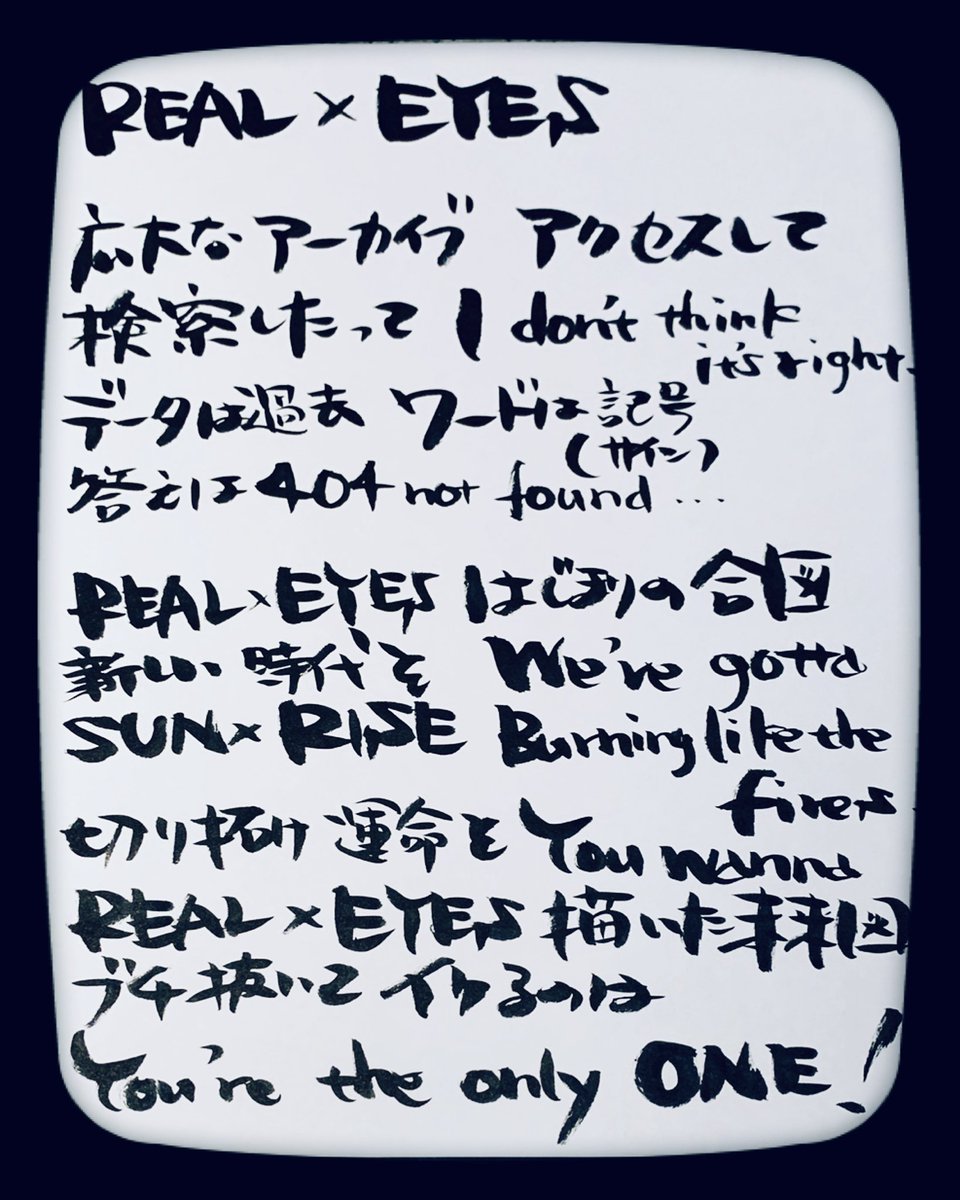 REAL×EYES
広大なアーカイブ アクセスして
検察したって I don't think
it's right.
データは過去 ワードは記号
(サイン)
答えは404 not found...
REAL×EYES はじまりの合図
新しい時代を We've gotta
SUN×RISE Burning like the
fires.
切り拓け運命を You wanna
REAL×EYES 描いた未来図
ブチ抜いてイケるのは
You're the only ONE!